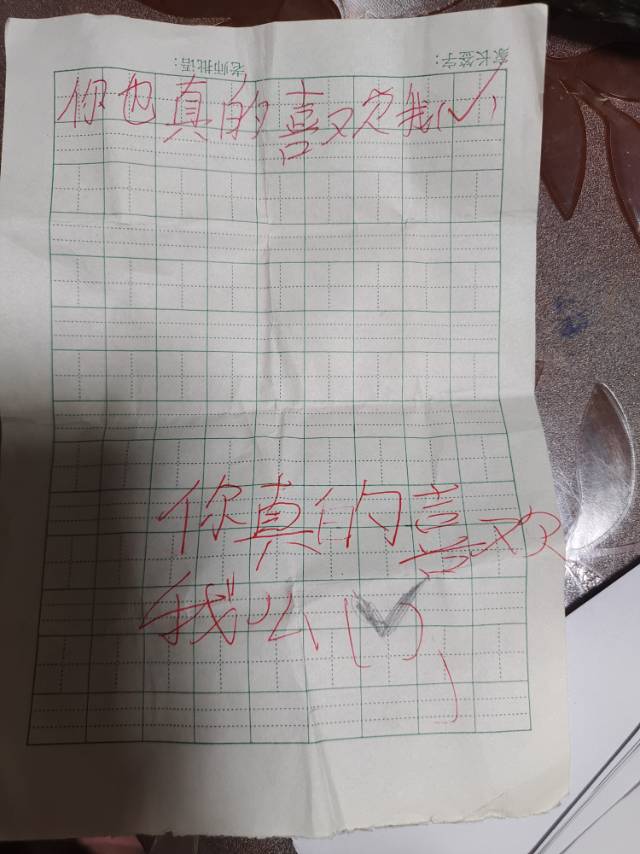 家长签字：
老师批语：
你也真的喜欢我(✓)
你真的喜欢
我么(✓)